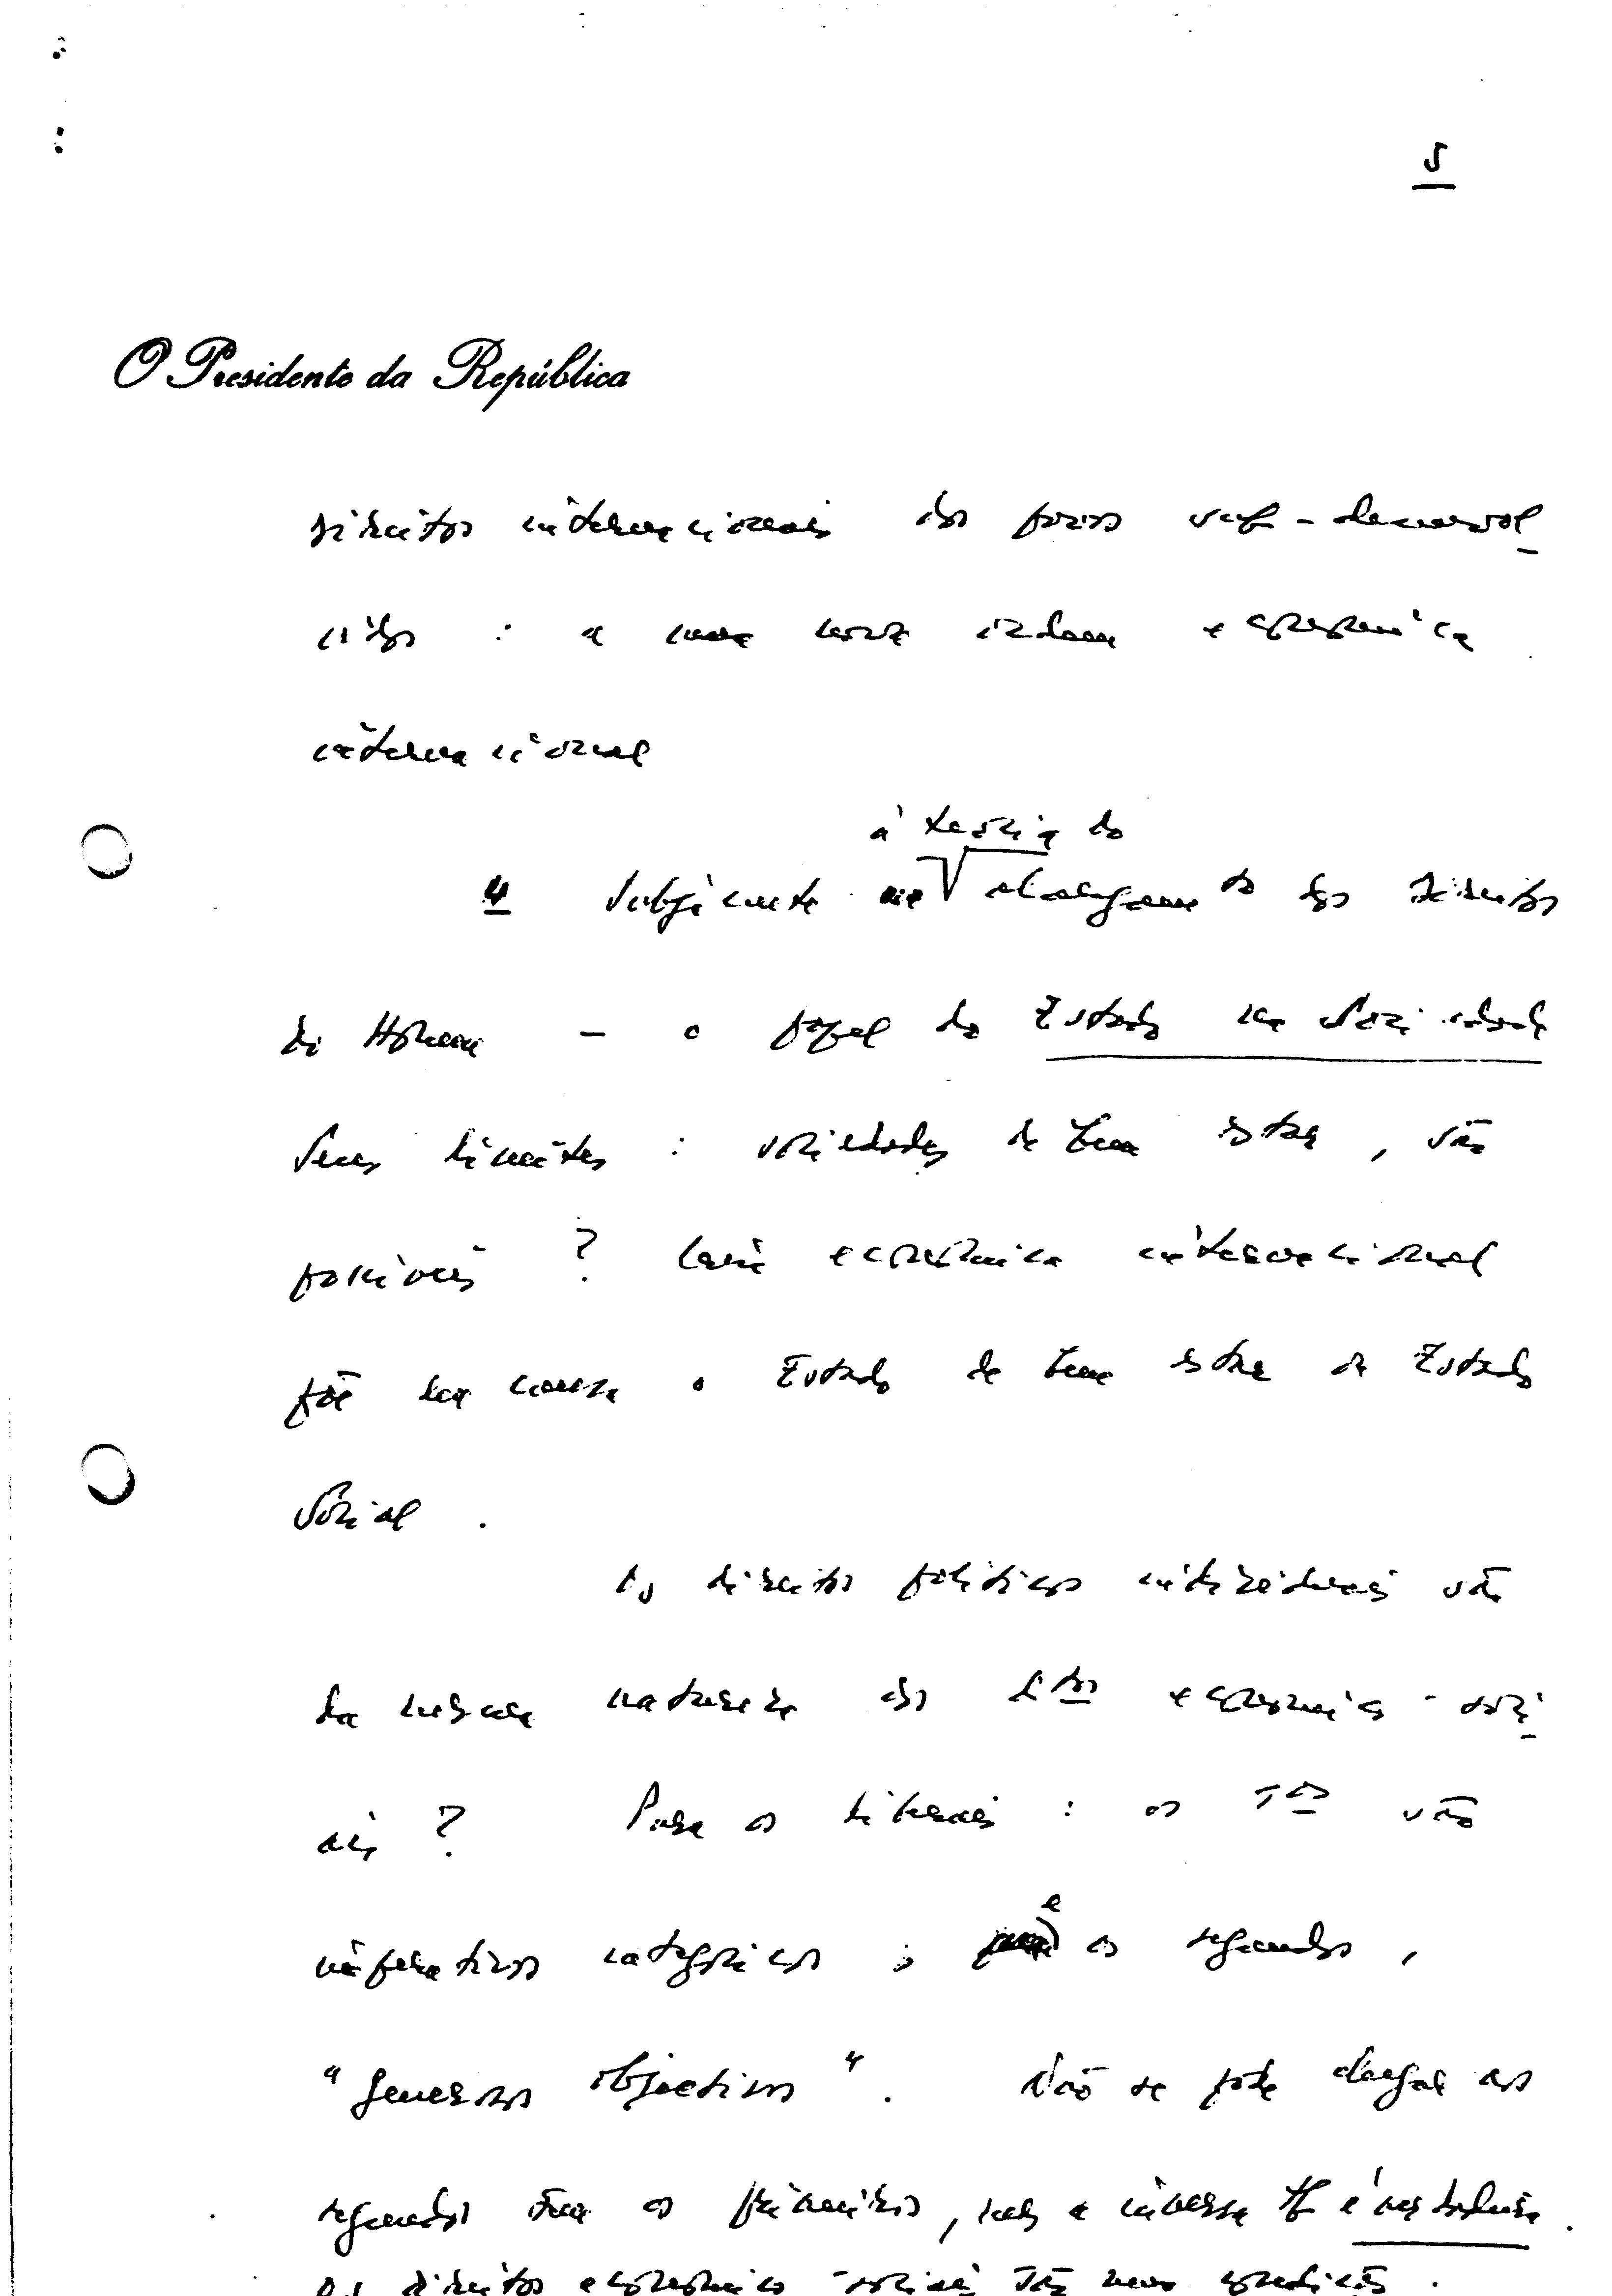 5
O Presidente da República
direitos internacionais dos povos sub-desenvol
vidos : a nova ordem económica
internacional
à teoria do
4 Subjacente ao alargamento dos direitos
do Homem - o papel do Estado na Sociedade
Seus limites : sociedades de bem estar, são
possíveis ? Crise económica internacional
põe em causa o Estado de bem estar o Estado
Social .
Os direitos políticos individuais são
da mesma natureza dos dtos económico-soci
ais ? Para os liberais : os 1os são
imperativos categóricos ; e os segundos,
"generosos objectivos". Não se pode chegar aos
segundos sem os primeiros, mas a inversa tb é verdadeira.
Os direitos económico-sociais são uma condição.